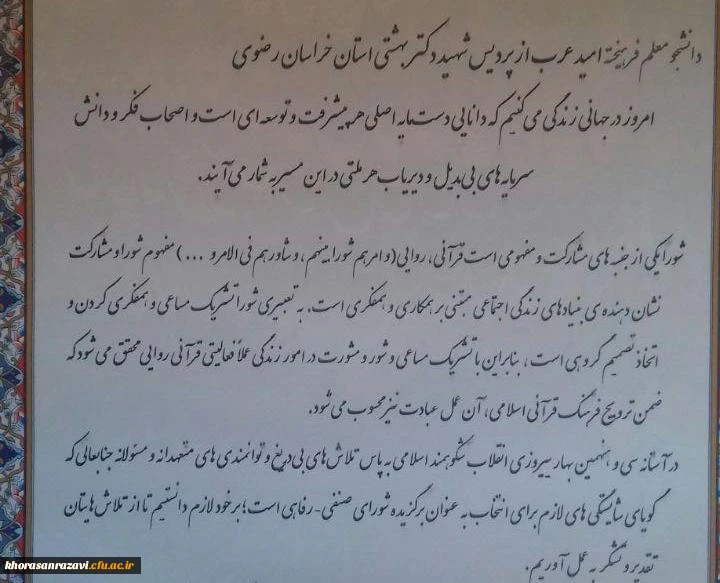 دانشجو معلم فرهیخته امید عرب از پردیس شهید دکتر بهشتی استان خراسان رضوی
امروز در جهانی زندگی می کنیم که دانایی دستمایه اصلی هر پیشرفت و توسعه ای است و اصحاب فکر و دانش
سرمایه های بی بدیل و دیریاب هر ملتی در این مسیر به شمار می آیند.
شورا یکی از جنبه های مشارکت و مفهومی است قرآنی، روایی (و امرهم شورا بینهم، و شاورهم فی الامر و ...) مفهوم شورا و مشارکت
نشان دهنده ی بنیادهای زندگی اجتماعی مبتنی بر همکاری و همفکری است. به تعبیری شورا تشریک مساعی و همفکری کردن و
اتخاذ تصمیم گروهی است، بنابراین با تشریک مساعی و شور و مشورت در امور زندگی عملاً فعالیتی قرآنی روایی محقق می شود که
ضمن ترویج فرهنگ قرآنی اسلامی، آن عمل عبادت نیز محسوب می شود.
در آستانه سی و هفتمین بهار پیروزی انقلاب شکوهمند اسلامی به پاس تلاش های بی دریغ و توانمندی های متعهدانه و مسئولانه جنابعالی که
گویای شایستگی های لازم برای انتخاب به عنوان برگزیده شورای صنفی-رفاهی است؛ بر خود لازم دانستیم تا از تلاش هایتان
تقدیر و تشکر به عمل آوریم.
khorasanrazavi.cfu.ac.ir